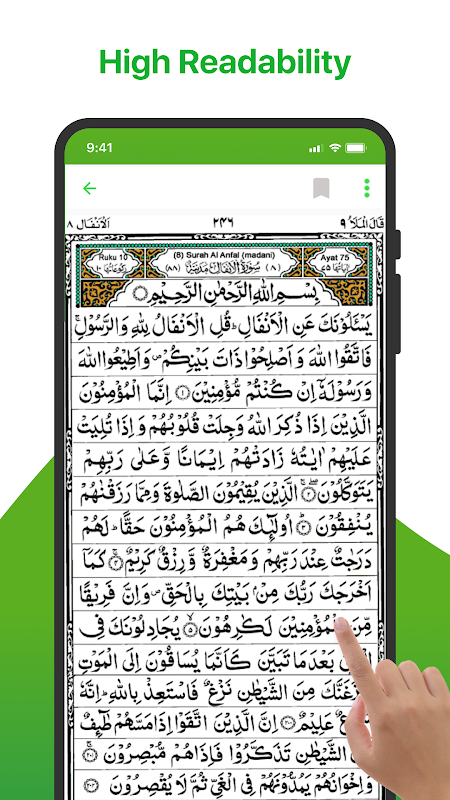 High Readability
9:41
اَلْاَنْفَال ٨
٢٤٦
قَالَ الْمَلَاُ ٩
Ruku 10
(8) Surah Al Anfal (madani)
Ayat 75
رُكُوْعَاتُهَا ١٠
(٨٨) سُوْرَةُ الْاَنْفَالِ مَدَنِيَّةٌ (٨)
اٰيَاتُهَا ٧٥
بِسْمِ اللّٰهِ الرَّحْمٰنِ الرَّحِيْمِ
يَسْئَلُوْنَكَ عَنِ الْاَنْفَالِ ؕ قُلِ الْاَنْفَالُ لِلّٰهِ وَ الرَّسُوْلِ ۚ
فَاتَّقُوا اللّٰهَ وَ اَصْلِحُوْا ذَاتَ بَيْنِكُمْ ۪ وَ اَطِيْعُوا اللّٰهَ
وَ رَسُوْلَهٗۤ اِنْ كُنْتُمْ مُّؤْمِنِيْنَ ﴿۱﴾ اِنَّمَا الْمُؤْمِنُوْنَ
الَّذِيْنَ اِذَا ذُكِرَ اللّٰهُ وَجِلَتْ قُلُوْبُهُمْ وَ اِذَا تُلِيَتْ
عَلَيْهِمْ اٰيٰتُهٗ زَادَتْهُمْ اِيْمَانًا وَّ عَلٰى رَبِّهِمْ
يَتَوَكَّلُوْنَ ﴿۲﴾ الَّذِيْنَ يُقِيْمُوْنَ الصَّلٰوةَ وَ مِمَّا رَزَقْنٰهُمْ
يُنْفِقُوْنَ ﴿۳﴾ اُولٰٓئِكَ هُمُ الْمُؤْمِنُوْنَ حَقًّا ؕ لَهُمْ
دَرَجٰتٌ عِنْدَ رَبِّهِمْ وَ مَغْفِرَةٌ وَّ رِزْقٌ كَرِيْمٌ ﴿۴﴾ كَمَاۤ
اَخْرَجَكَ رَبُّكَ مِنْۢ بَيْتِكَ بِالْحَقِّ ۪ وَ اِنَّ فَرِيْقًا
مِّنَ الْمُؤْمِنِيْنَ لَكٰرِهُوْنَ ﴿۵﴾ يُجَادِلُوْنَكَ فِى
بَعْدَ مَا تَبَيَّنَ كَاَنَّمَا يُسَاقُوْنَ اِلَى الْمَوْتِ
مِنَ الشَّيْطٰنِ نَزْغٌ فَاسْتَعِذْ بِاللّٰهِ ؕ اِنَّهٗ
عَلِيْمٌ ﴿۲۰۰﴾ اِنَّ الَّذِيْنَ اتَّقَوْا اِذَا مَسَّهُمْ طٰٓئِفٌ
الشَّيْطٰنِ تَذَكَّرُوْا فَاِذَا هُمْ مُّبْصِرُوْنَ ﴿۲۰۱﴾
وَ اِخْوَانُهُمْ يَمُدُّوْنَهُمْ فِى الْغَىِّ ثُمَّ لَا يُقْصِرُوْنَ